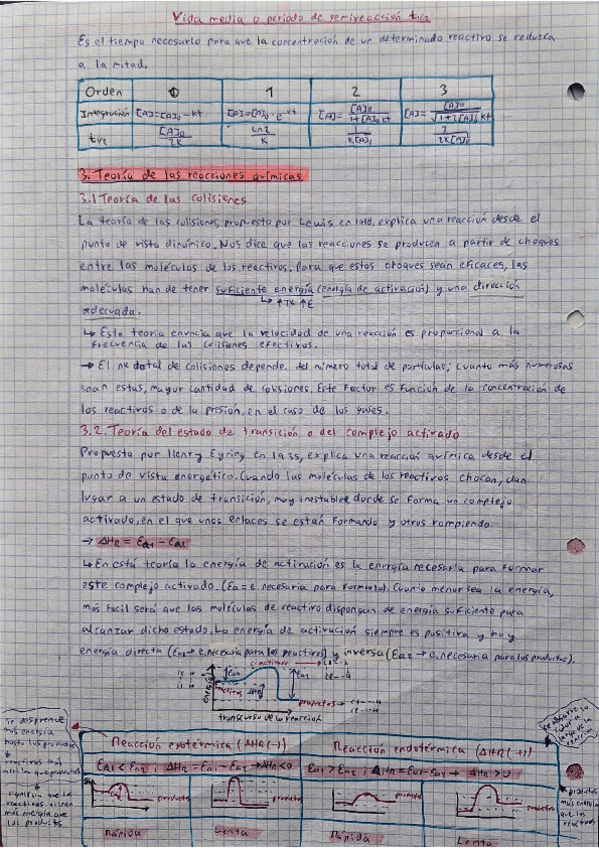 Vida media o periodo de semirreacción t1/2
Es el tiempo necesario para que la concentración de un determinado reactivo se reduzca
a la mitad.
Orden 0 1 2 3
Integración [A]=[A]₀-Kt [A]=[A]₀·e^-Kt [A]= [A]₀/1+[A]₀Kt [A]= [A]₀
t1/2 [A]₀/2K Ln2/K 1/K[A]₀
3. Teoría de las reacciones químicas.
3.1 Teoría de las colisiones
La teoría de las colisiones, propuesta por Lewis en 1918, explica una reacción desde el
punto de vista dinámico. Nos dice que las reacciones se producen a partir de choques
entre las moléculas de los reactivos. Para que estos choques sean eficaces, las
moléculas han de tener suficiente energía (energía de activación) y una dirección
adecuada.
↳ Esta teoría enuncia que la velocidad de una reacción es proporcional a la
frecuencia de las colisiones efectivas.
→ El total de colisiones depende del número total de partículas; cuanto más numerosas
sean estas, mayor cantidad de colisiones. Este factor es función de la concentración de
los reactivos o de la presión, en el caso de los gases.
3.2. Teoría del estado de transición o del complejo activado
Propuesta por Henry Eyring en 1935, explica una reacción química desde el
punto de vista energético. Cuando las moléculas de los reactivos chocan, dan
lugar a un estado de transición, muy inestable, donde se forma un complejo
activado, en el que unos enlaces se están formando y otros rompiendo.
→ ΔHR = Ea1 - Ea2
↳ En está teoría la energía de activación es la energía necesaria para formar
este complejo activado. (Ea = e necesaria para formarlo). Cuanto menor sea la energía,
más facil será que las moléculas de reactivo dispongan de energía suficiente para
alcanzar dicho estado. La energía de activación siempre es positiva y hay
energía directa (Ea1 → e. necesaria para los reactivos) y inversa (Ea2 → e. necesaria para los productos).
energía
Ea1
Ea2
reactivos
ΔHR
productos
transcurso de la reacción
Se desprende
más energía
hasta los productos
Reacción exotérmica (ΔHR(-)) Reacción endotérmica (ΔHR(+))
Ea1 < Ea2 ; ΔHR = Ea1 - Ea2 → ΔHR<0 Ea1 > Ea2 ; ΔHR = Ea1 - Ea2 → ΔHR > 0
reactivos tienen
más energía que
los productos
productos
más energía
que los
reactivos
producto producto producto producto
Rápida Lenta Rápida Lenta